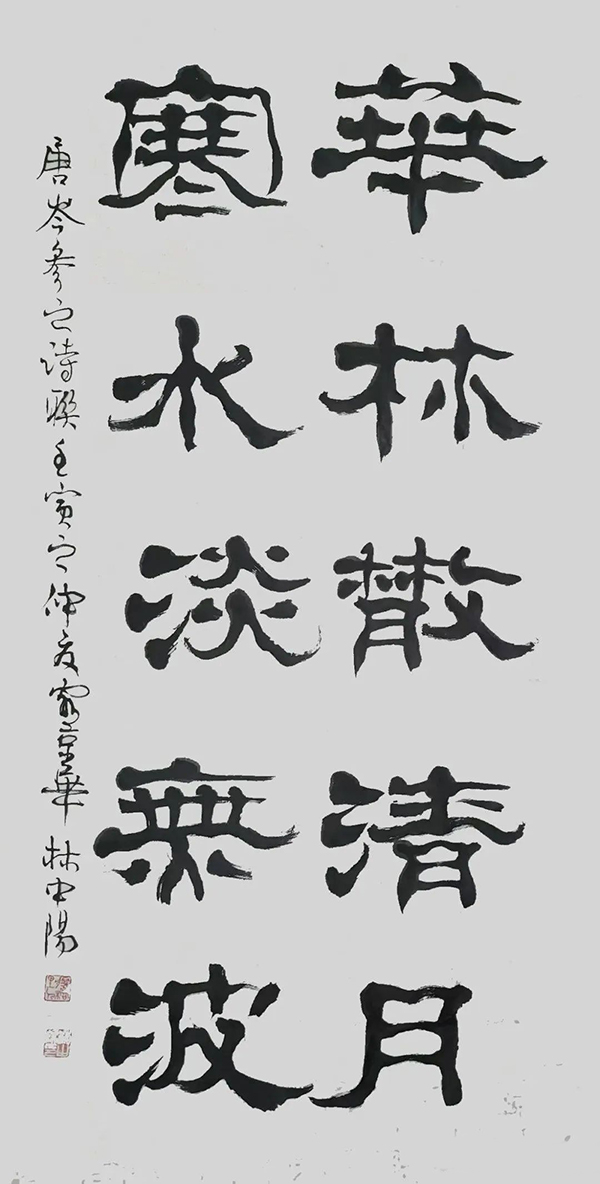 華林散清月
寒水淡無波
唐岑參之詩聯壬寅之仲夏寫京華林中陽